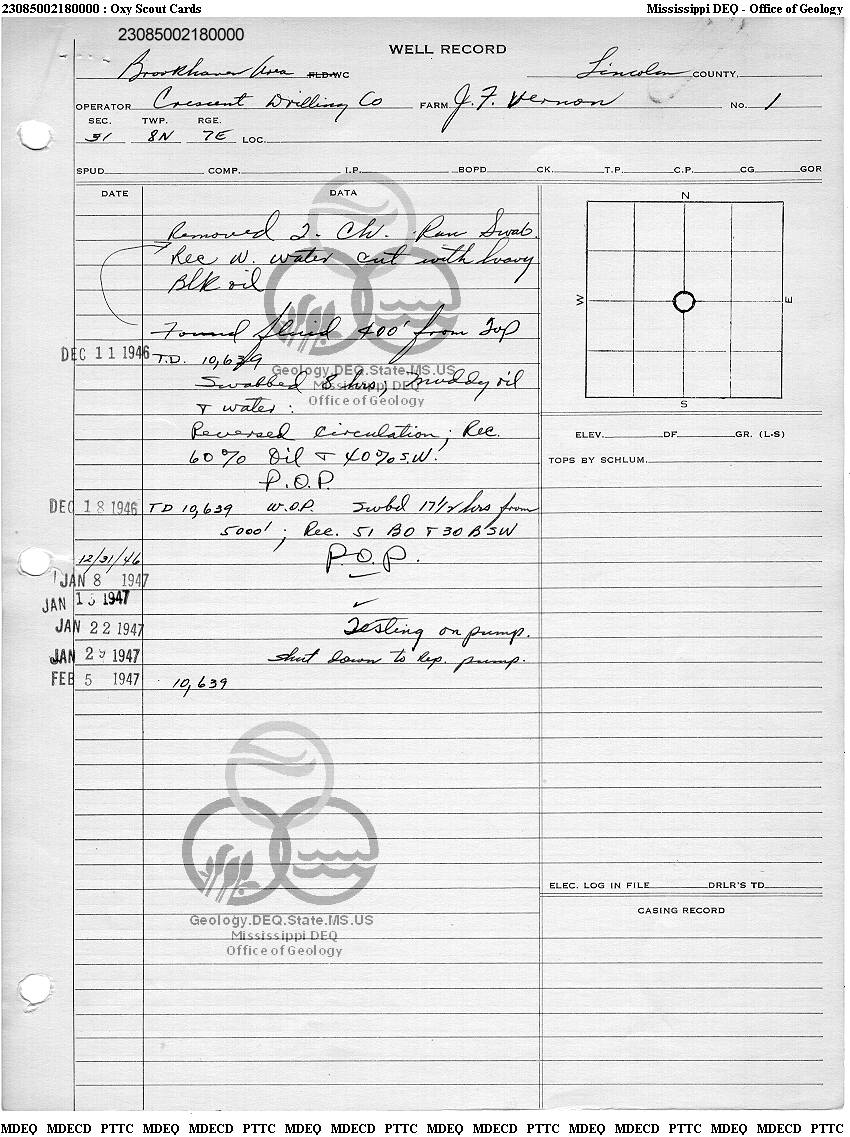 23085002180000 : Oxy Scout Cards Mississippi DEQ - Office of Geology
23085002180000
WELL RECORD
Brookhaven Area FLD-WC Lincoln COUNTY,
OPERATOR Crescent Drilling Co FARM J. F. Vernon No. 1
SEC. TWP. RGE.
31 8N 7E LOC.
SPUD COMP. I.P. BOPD CK. T.P. C.P. CG GOR
DATE DATA
Removed 2- Ch. Ran Swab.
Rec W. water cut with heavy
Blk oil
Found fluid 400' from Top
DEC 11 1946 T.D. 10,639
Swabbed 8 hrs, muddy oil
& water:
Reversed circulation; Rec.
60% Oil & 40% S.W.
P.O.P.
DEC 18 1946 TD 10,639 W.O.P. Swbd 17 1/2 hrs from
5000'; Rec. 51 BO & 30 BSW
12/31/46 P.O.P.
JAN 8 1947
JAN 15 1947
JAN 22 1947 Testing on pump.
JAN 29 1947 Shut down to Rep. pump.
FEB 5 1947 10,639
N
W E
S
ELEV. DF. GR. (L-S)
TOPS BY SCHLUM.
ELEC. LOG IN FILE DRLR'S TD
CASING RECORD
Geology.DEQ.State.MS.US
Mississippi DEQ
Office of Geology
Geology.DEQ.State.MS.US
Mississippi DEQ
Office of Geology
MDEQ MDECD PTTC MDEQ MDECD PTTC MDEQ MDECD PTTC MDEQ MDECD PTTC MDEQ MDECD PTTC MDEQ MDECD PTTC